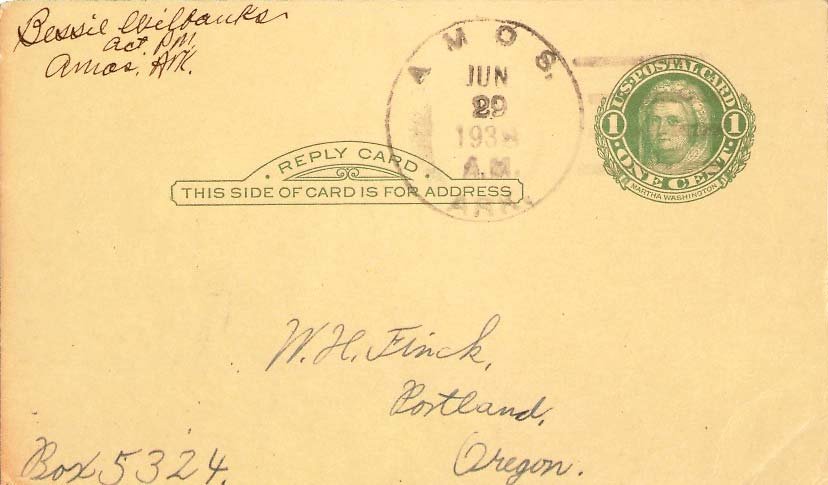 Bessie Wilbanks
Act. P.M.
Amos, Ark.
AMOS.
JUN
29
1938
A.M.
ARK.
U·S·POSTAL CARD
1 1
·ONE CENT·
MARTHA WASHINGTON
· REPLY CARD ·
THIS SIDE OF CARD IS FOR ADDRESS
W. H. Finck,
Portland,
Oregon.
Box 5324.